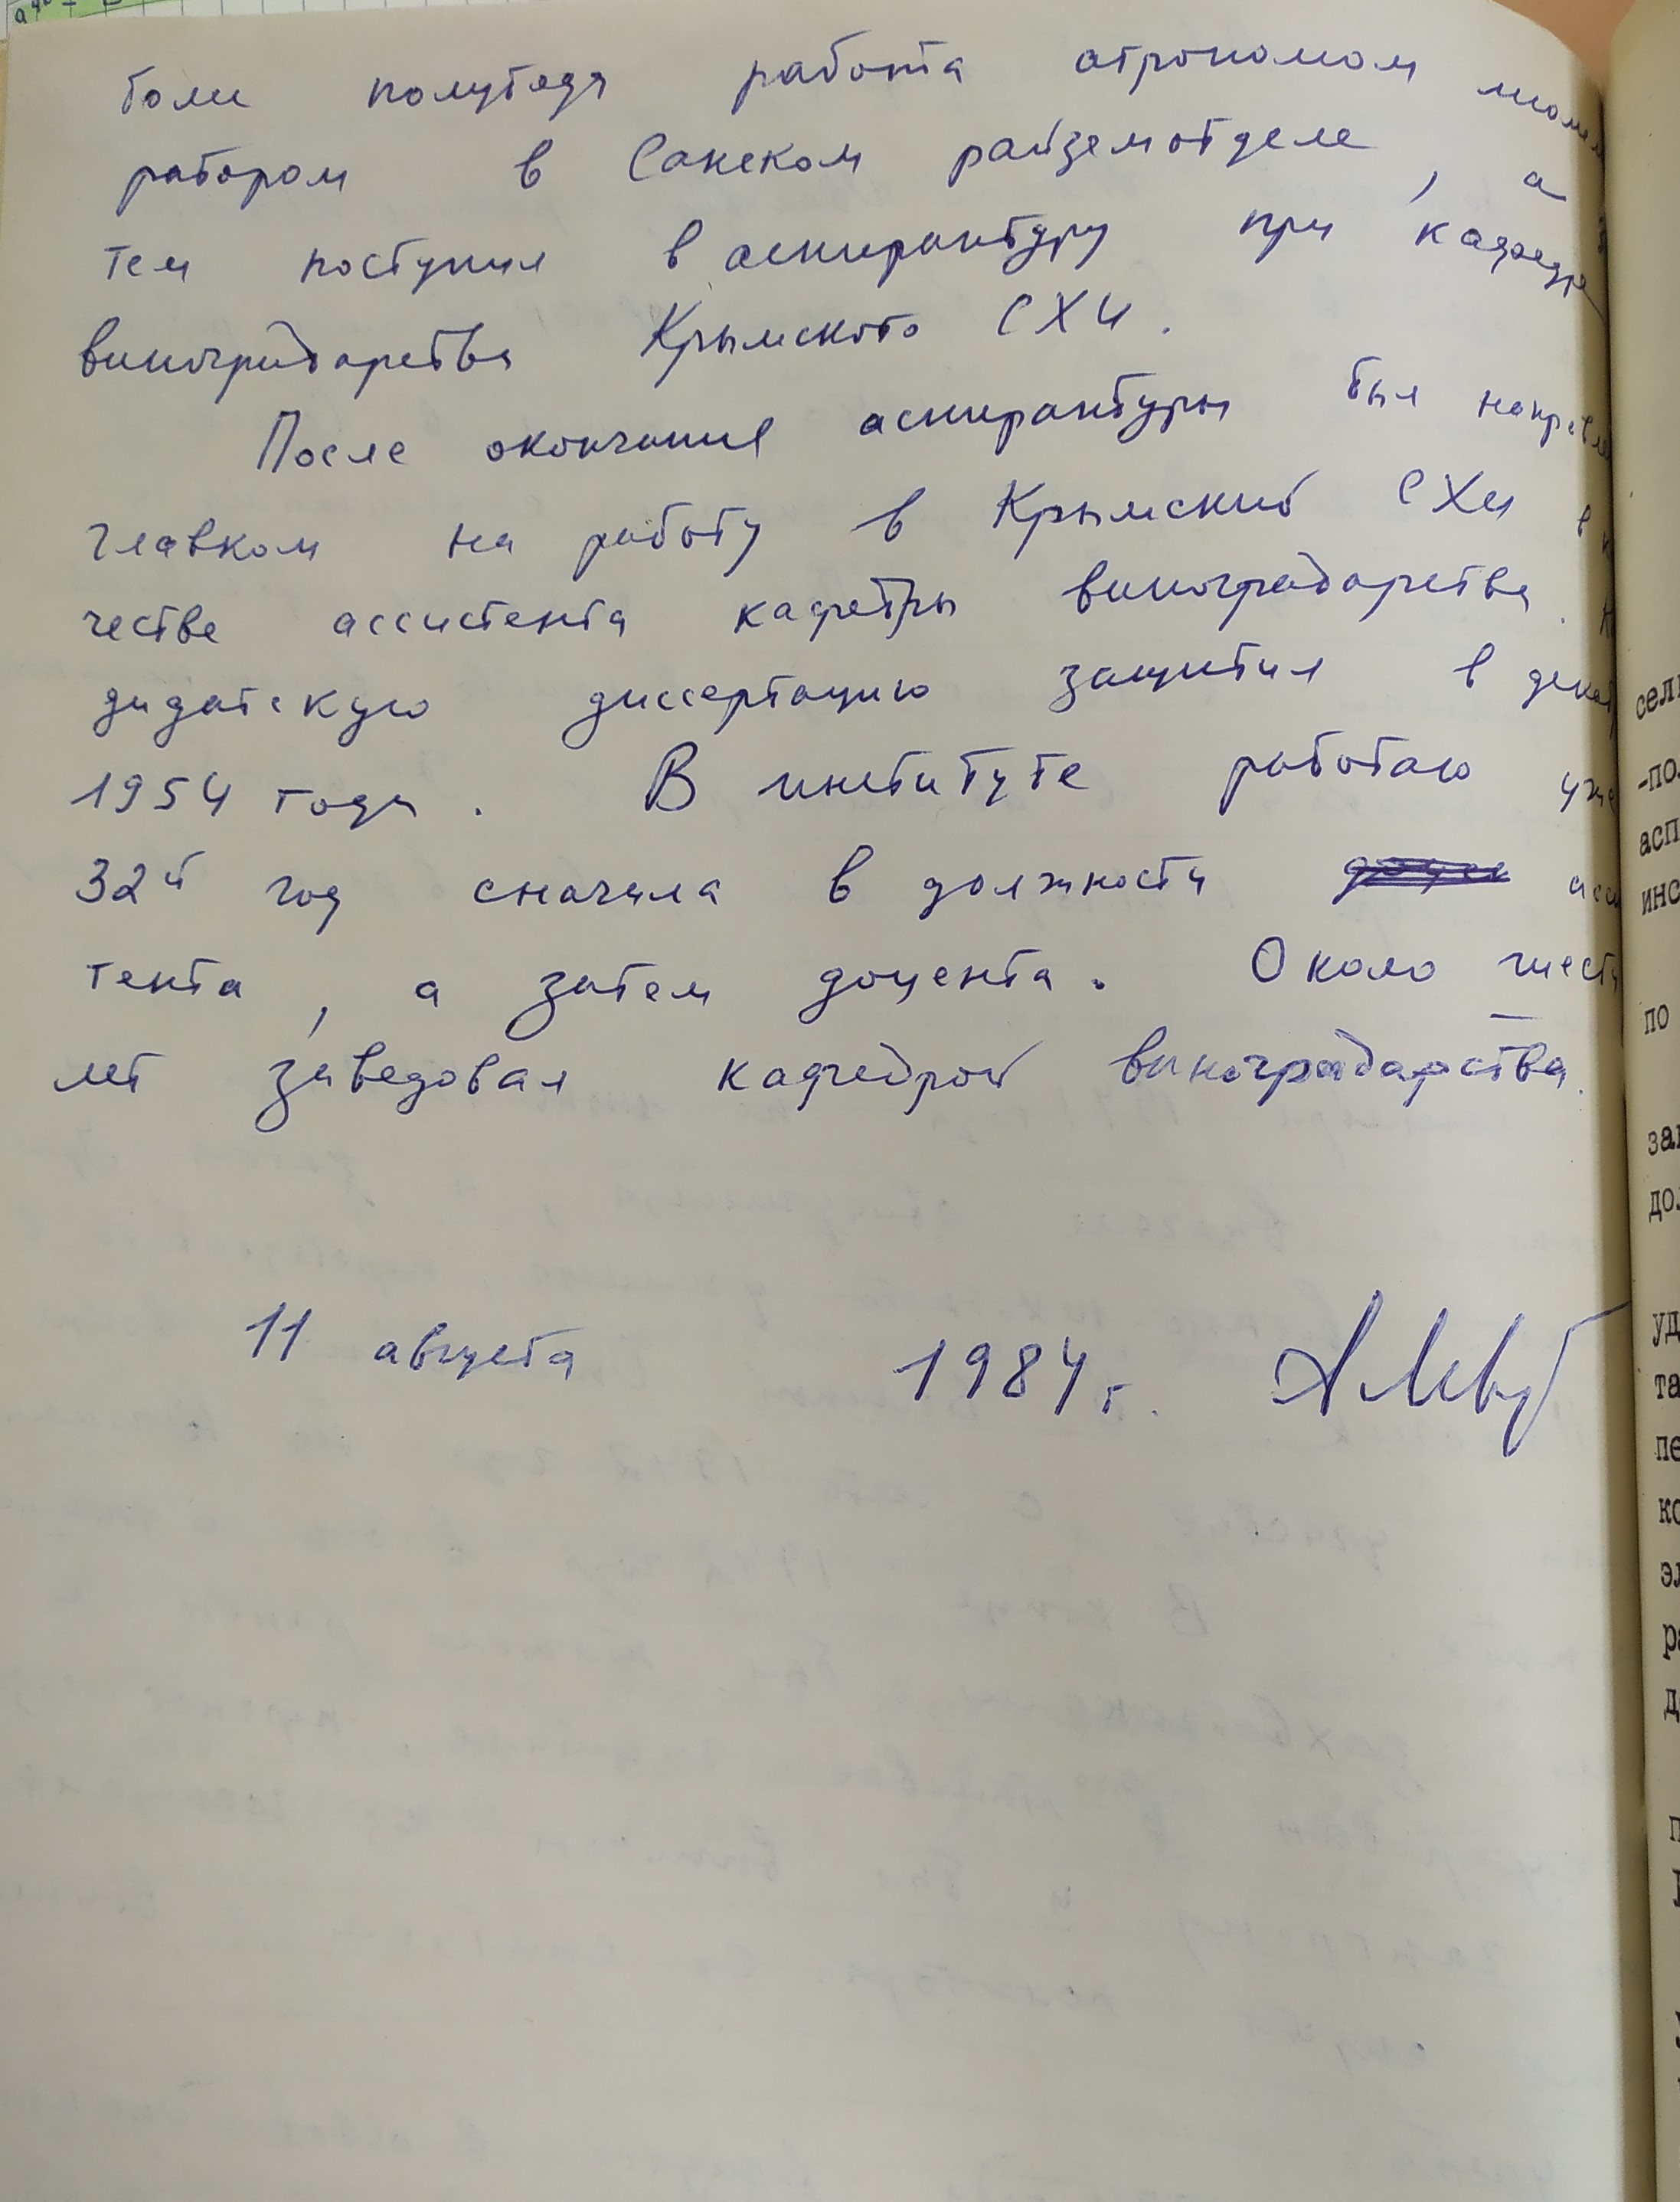 боли полугода работа агрономом
ратором в Сакском райземотделе, а
тем поступил в аспирантуру при кафедре
виноградарства Крымского СХИ.
После окончания аспирантуры был направле
главком на работу в Крымский СХИ в
честве ассистента кафедры виноградарства.
дидатскую диссертацию защитил в декаб
1954 года. В институте работаю уже
32й год сначала в должности асси
тента, а затем доцента. Около шести
лет заведовал кафедрой виноградарства.
11 августа 1984 г.
сель
-пол
асп
инс
по
зак
дол
уд
та
пе
ко
эл
ра
д